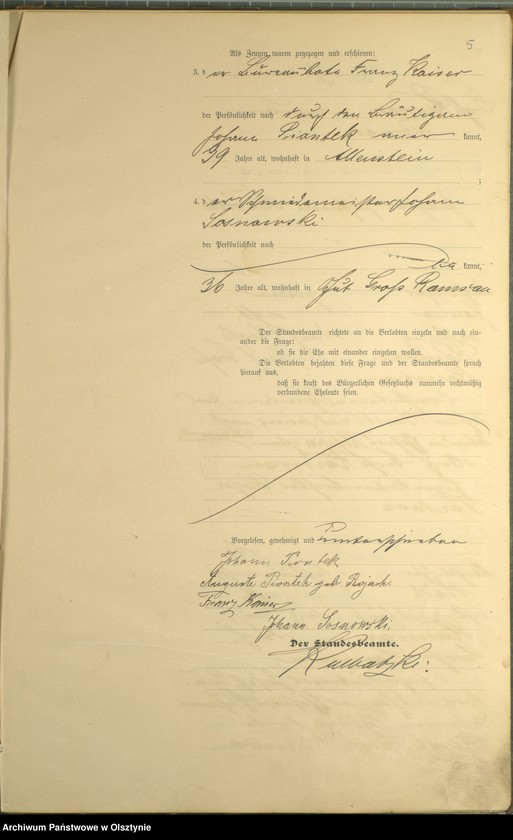 5
Als Zeugen waren zugezogen und erschienen:
3. d er Bureaubote Franz Kaiser
der Persönlichkeit nach durch den Bräutigam
Johann Piontek aner kannt,
39 Jahre alt, wohnhaft in Allenstein
;
4. d er Schmiedemeister Johann
Sosnowski
der Persönlichkeit nach
be kannt,
36 Jahre alt, wohnhaft in Gut Groß Ramsau
Der Standesbeamte richtete an die Verlobten einzeln und nach ein-
ander die Frage:
ob sie die Ehe mit einander eingehen wollen.
Die Verlobten bejahten diese Frage und der Standesbeamte sprach
hierauf aus,
daß sie kraft des Bürgerlichen Gesetzbuchs nunmehr rechtmäßig
verbundene Eheleute seien.
Vorgelesen, genehmigt und unterschrieben
Johann Piontek
Auguste Piontek geb
Franz Kaiser
Johann Sosnowski.
Der Standesbeamte.
Archiwum Państwowe w Olsztynie